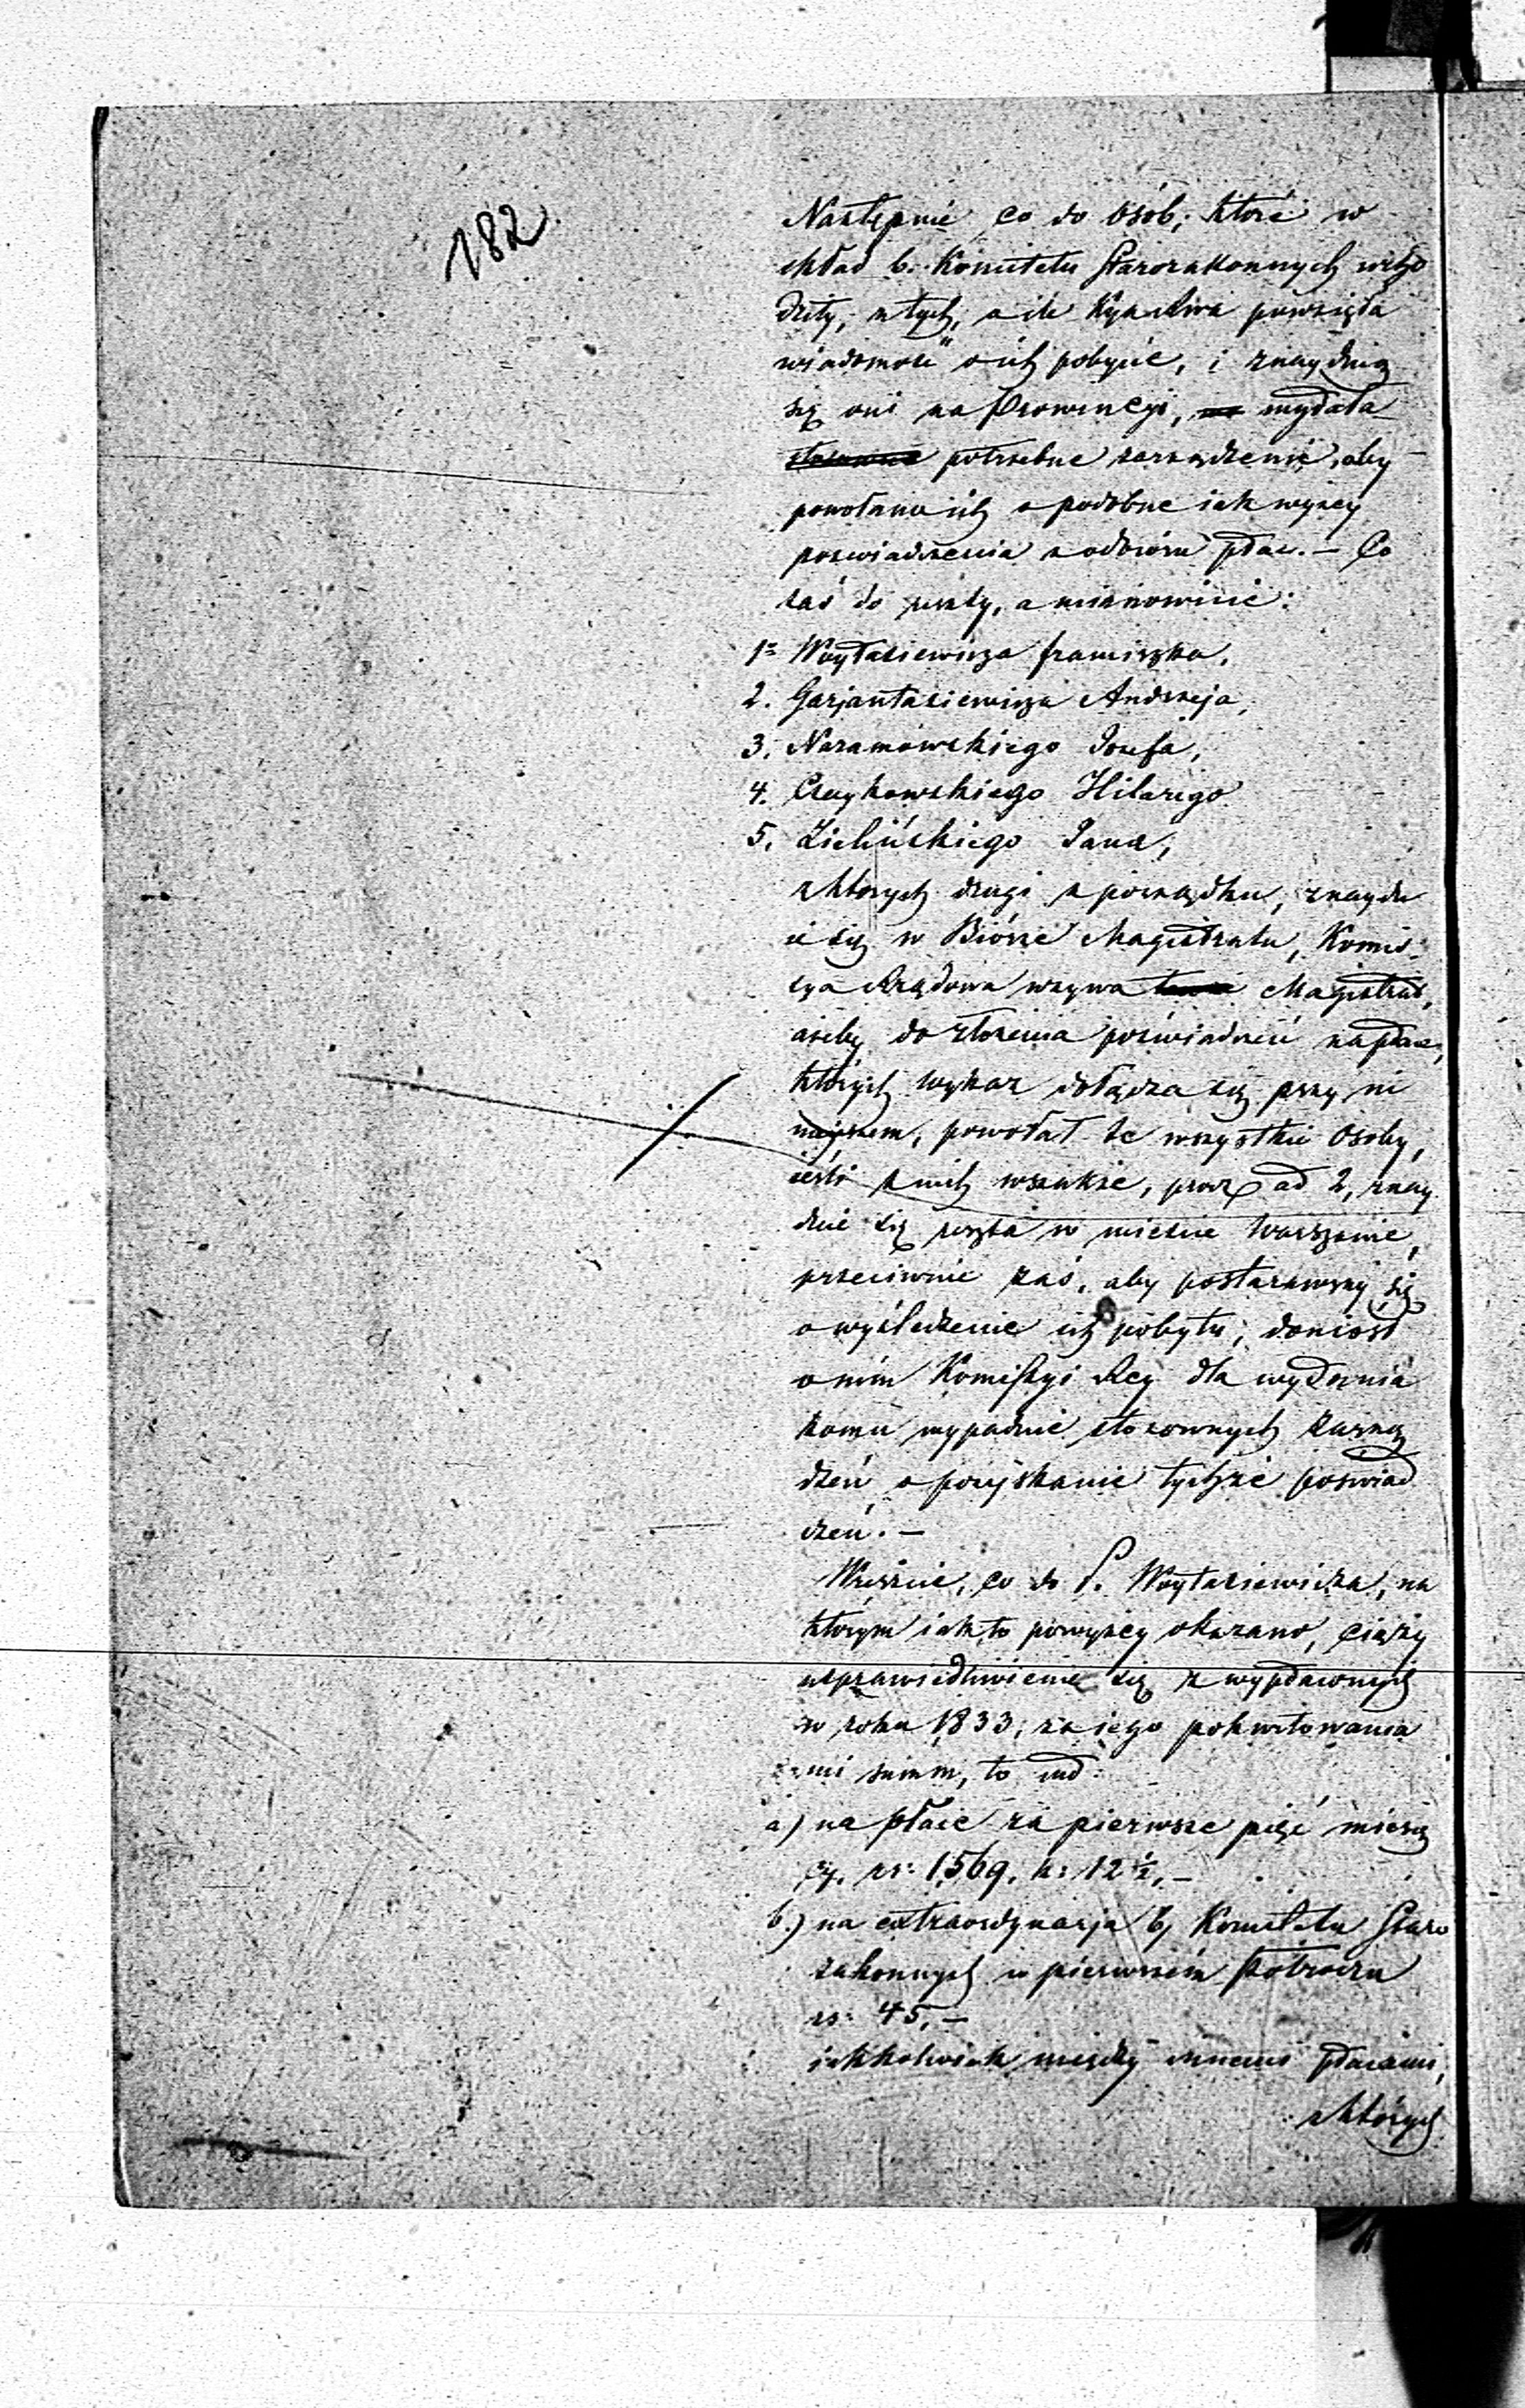 182
Następnie, co do osób; które w
skład b. Komitetu Starozakonnych wcho
dziły, z tych, o ile Rząd powzięła
wiadomość o ich pobycie, i znaydują
się oni na Prowincyi, wydała
potrzebne zarządzenie, aby
powołano ich o podobne iak wyżey
poświadczenia z odbioru płac. — Co
zaś do reszty, a mianowicie:
1. Woytasiewicza Franciszka,
2. Garjantasiewicza Andrzeja,
3. Naramowskiego Josefa,
4. Czaykowskiego Hilarego
5. Zielińskiego Jana,
z których drugi z porządku, znaydu
ie się w Biórze Magistratu, Komis
sya Rządowa wzywa Magistrat,
ażeby do złożenia poświadczeń na płace,
których wykaz dołącza się przy ni
nieyszem, powołał te wszystkie osoby,
ieśli z nich wszakże, prócz ad 2, znay
dzie się reszta w mieście Warszawie,
przeciwnie zaś, aby postarawszy się
o wyśledzenie ich pobytu, doniósł
o nim Komissyi Rey dla wydania
komu wypadnie stosownych zarzą
dzeń, o pozyskanie tychże poświad
czeń. —
Wreszcie, co do P. Woytasiewicza, na
którym iak to powyżey okazano, ciąży
usprawiedliwienie się z wypłaconych
w roku 1833, za iego pokwitowania
mi summ, to iest:
a) na płace za pierwsze pięć miesię
cy, rs: 1,569, k: 12½, —
b.) na extraordynarja b, Komitetu Staro
zakonnych w pierwszém półroczu
rs: 45, —
iakkolwiek między innemi płacami,
z których